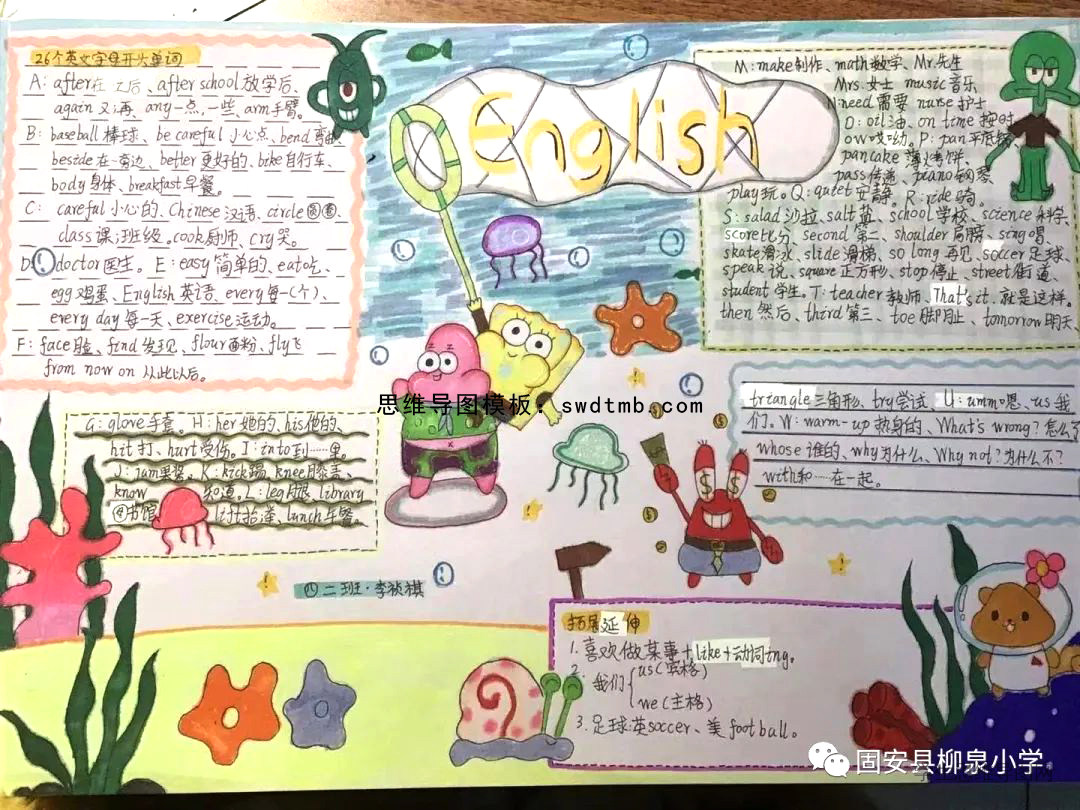 English
26个英文字母开头单词
A: after在之后、after school放学后、
again又,再、any一点,一些、arm手臂。
B: baseball棒球、be careful小心点、bend弯曲、
beside在…旁边、better更好的、bike自行车、
body身体、breakfast早餐。
C: careful小心的、Chinese汉语、circle圆圈、
class课;班级。cook厨师、cry哭。
D: doctor医生。E: easy简单的、eat吃、
egg鸡蛋、English英语、every每一(个)、
every day每一天、exercise运动。
F: face脸、find发现、flour面粉、fly飞
from now on从此以后。
G: glove手套。H: her她的、his他的、
hit打、hurt受伤。I: into到……里。
J: jam果酱。K: kick踢、knee膝盖、
know 知道。L: leg腿 library
图书馆 lift抬逢、lunch午餐。
M: make制作、math数学、Mr.先生
Mrs.女士 music音乐
N need需要 nurse护士
O: oil油、on time按时
ow哎呦。P: pan平底锅
pancake薄烤饼、
pass传递、piano钢琴
play玩。Q: quiet安静。R: ride骑。
S: salad沙拉、salt盐、school学校、science科学
score比分、second第二、shoulder肩膀、sing唱、
skate滑冰、slide滑梯、so long再见、soccer足球
speak说、square正方形、stop停止、street街道、
student学生。T: teacher教师、That's it.就是这样。
then然后、third第三、toe脚趾、tomorrow明天、
triangle三角形、try尝试、U: umm嗯、us我
们。W: warm-up热身的、What's wrong?怎么了
whose谁的、why为什么、Why not?为什么不?
with和……在一起。
思维导图模板：swdtmb.com
四二班·李祯祺
拓展延伸
1. 喜欢做某事+like+动词ing。
2. 我们{us(宾格)
we(主格)
3. 足球英soccer、美football。
固安县柳泉小学